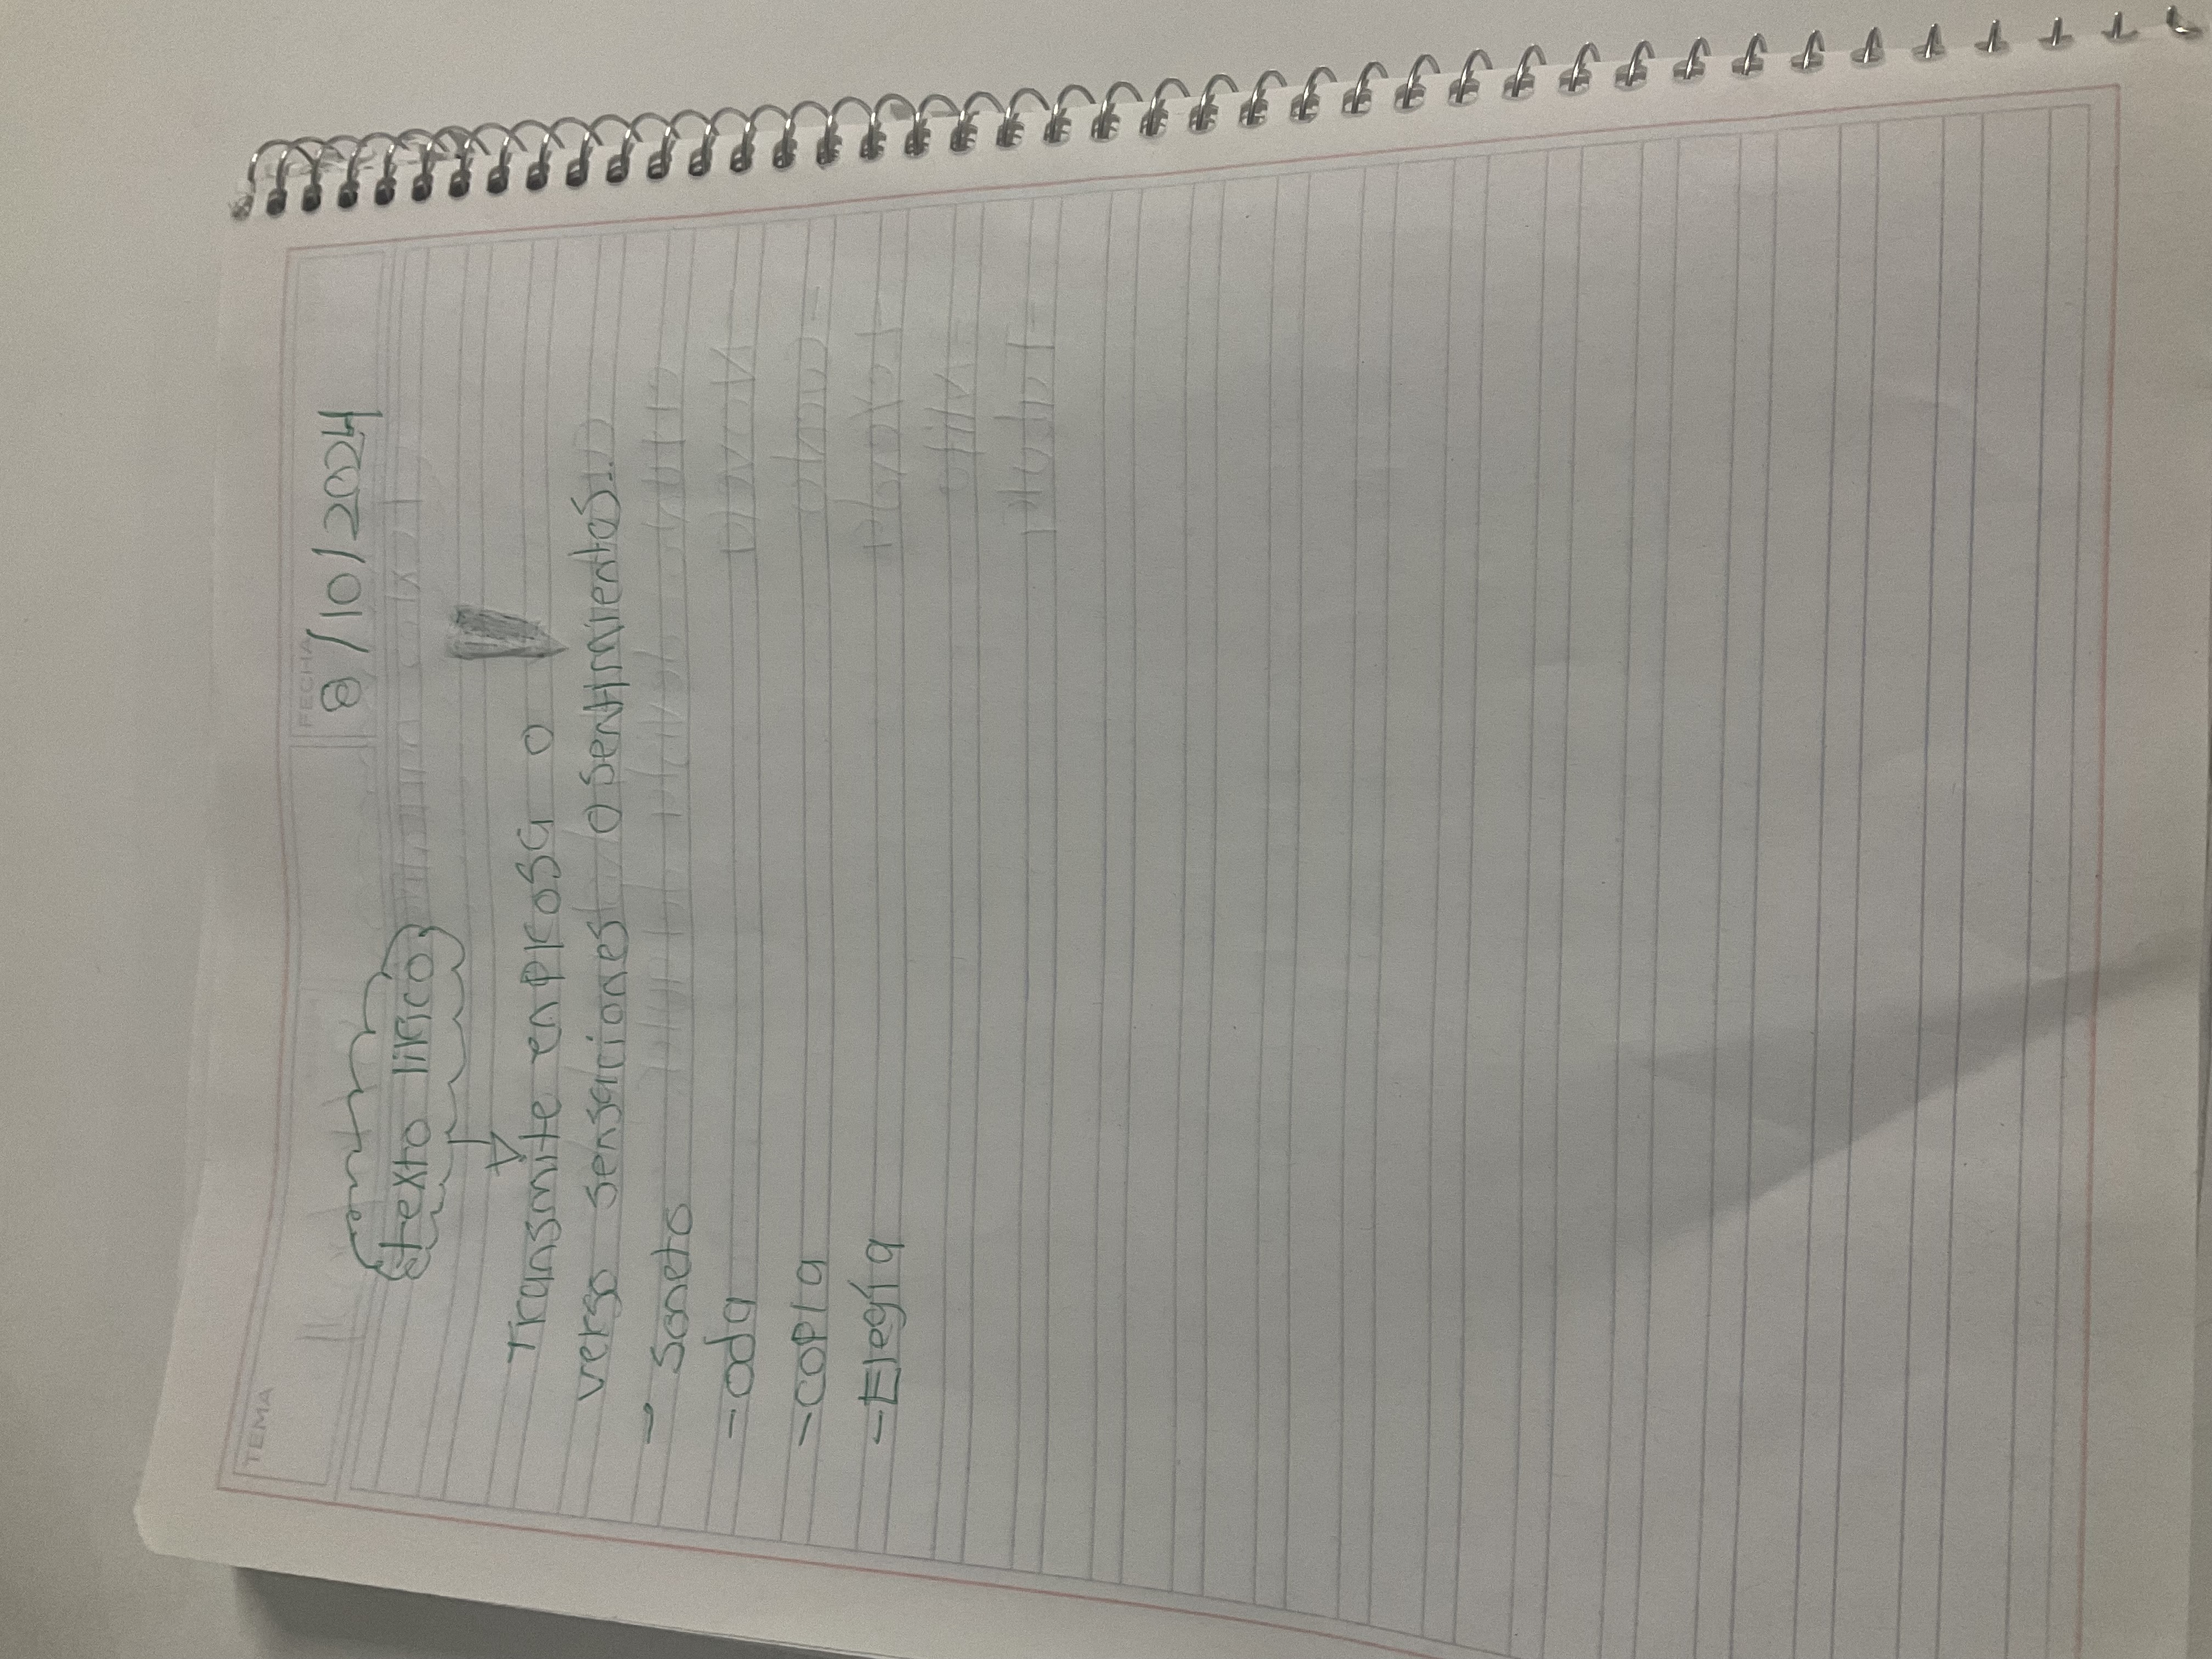 TEMA
FECHA
8/10/2024
texto lirico
Transmite en prosa o
verso sensaciones o sentimientos.
- Soneto
- oda
- copla
- Elegía